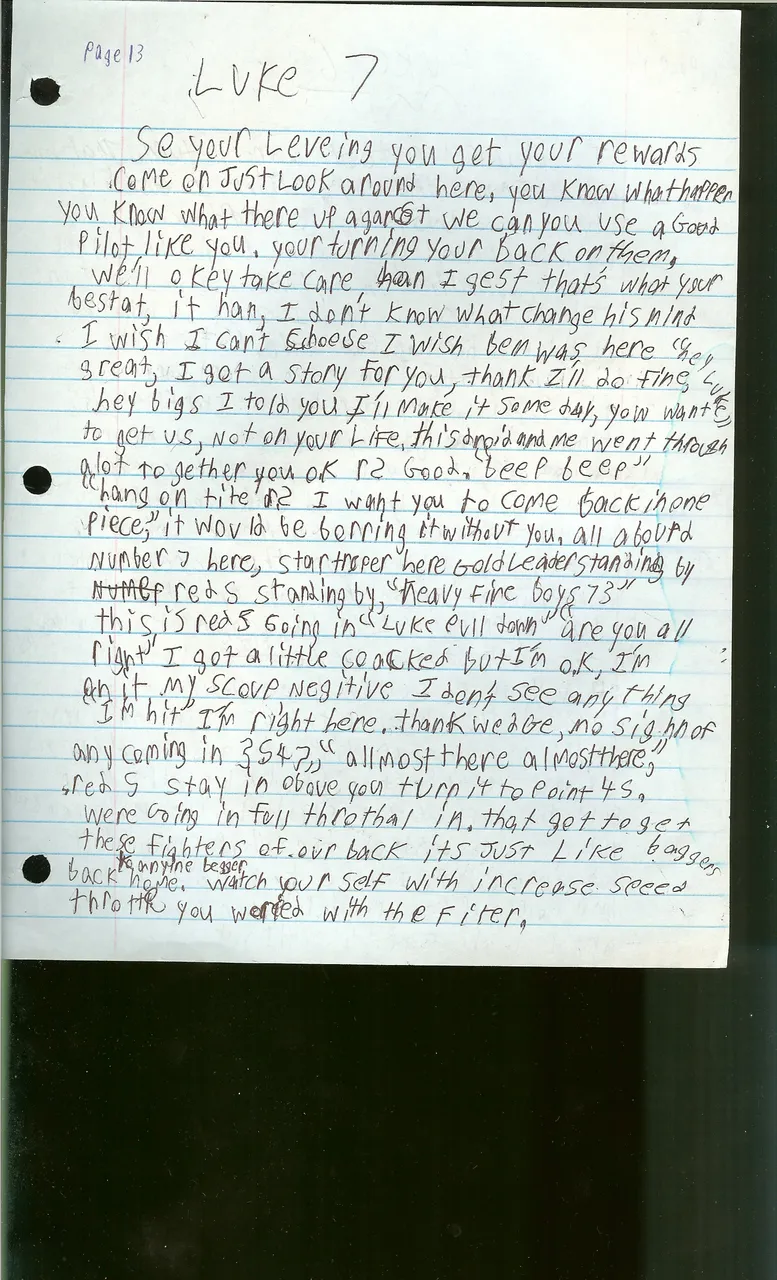 Page 13
Luke 7
So your Leveing you get your rewards
come on Just Look around here, you know what happen
you know what there up aganst we can you use a Good
Pilot like you. your turning your back on them,
we'll okey take care han I gest that's what your
best at, it han, I don't know what change his mind
I wish I can't Choose I wish Ben was here "hey
great, I got a story for you, thank I'll do fine, Luke
hey bigs I told you I'll make it some day, you want
to get us, not on your Life, this droid and me went through
alot to gether you ok r2 Good. "beep beep"
"hang on tite r2 I want you to come back in one
piece," it would be borring it without you, all abourd
number 7 here, startroper here Gold Leader standing by
red 5 standing by, "heavy fire boys 73"
this is red 5 Going in "Luke evil down" "are you all
right" I got a little coacked but I'm o.k, I'm
on it my scoup Negitive I don't see any thing
I'm hit" I'm right here. thank wedge, no sighn of
any coming in 3547," "allmost there almost there,"
red 5 stay in above you turn it to point 45.
were Going in full throthal in. that got to get
these fighters of our back its Just Like baggers
back home. watch your self with increase speed
throttle you worried with the fiter,